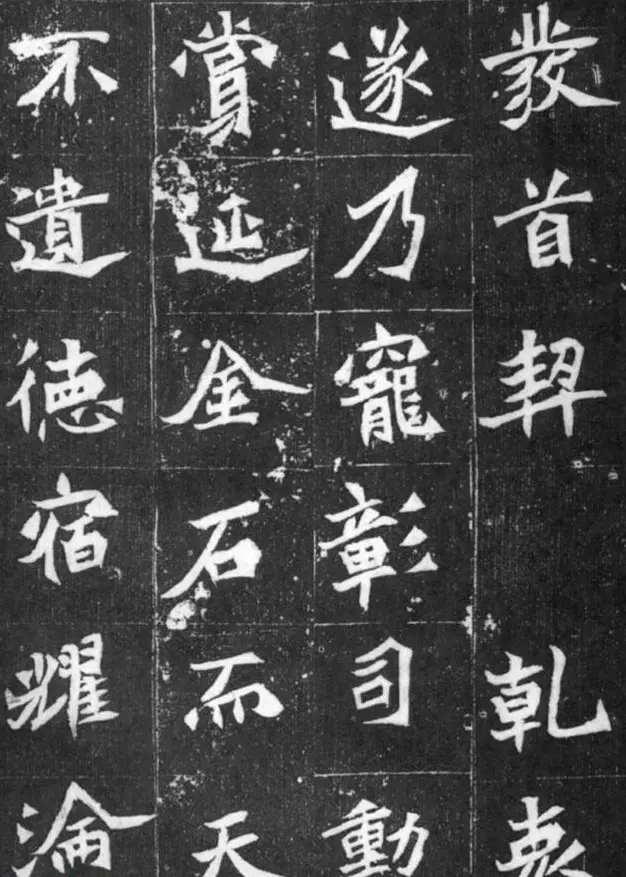 發首契 乾衷
遂乃寵彰司動
賞延金石而天
不遺德宿耀淪